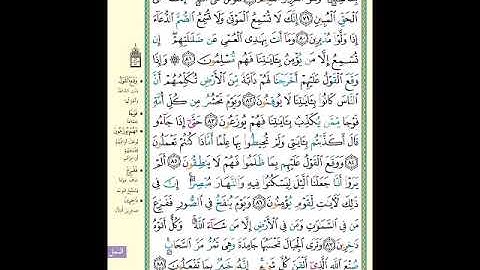 الْحَقِّ الْمُبِينِ ٧٩ إِنَّكَ لَا تُسْمِعُ الْمَوْتَىٰ وَلَا تُسْمِعُ الصُّمَّ الدُّعَاءَ
إِذَا وَلَّوْا مُدْبِرِينَ ٨٠ وَمَا أَنتَ بِهَادِي الْعُمْيِ عَن ضَلَالَتِهِمْ إِن
تُسْمِعُ إِلَّا مَن يُؤْمِنُ بِآيَاتِنَا فَهُم مُّسْلِمُونَ ٨١ ۞ وَإِذَا
وَقَعَ الْقَوْلُ عَلَيْهِمْ أَخْرَجْنَا لَهُمْ دَابَّةً مِّنَ الْأَرْضِ تُكَلِّمُهُمْ أَنَّ
النَّاسَ كَانُوا بِآيَاتِنَا لَا يُوقِنُونَ ٨٢ وَيَوْمَ نَحْشُرُ مِن كُلِّ أُمَّةٍ
فَوْجًا مِّمَّن يُكَذِّبُ بِآيَاتِنَا فَهُمْ يُوزَعُونَ ٨٣ حَتَّىٰ إِذَا جَاءُو
قَالَ أَكَذَّبْتُم بِآيَاتِي وَلَمْ تُحِيطُوا بِهَا عِلْمًا أَمَّاذَا كُنتُمْ تَعْمَلُونَ
٨٤ وَوَقَعَ الْقَوْلُ عَلَيْهِم بِمَا ظَلَمُوا فَهُمْ لَا يَنطِقُونَ ٨٥ أَلَمْ
يَرَوْا أَنَّا جَعَلْنَا اللَّيْلَ لِيَسْكُنُوا فِيهِ وَالنَّهَارَ مُبْصِرًا إِنَّ فِي
ذَٰلِكَ لَآيَاتٍ لِّقَوْمٍ يُؤْمِنُونَ ٨٦ وَيَوْمَ يُنفَخُ فِي الصُّورِ فَفَزِعَ
مَن فِي السَّمَاوَاتِ وَمَن فِي الْأَرْضِ إِلَّا مَن شَاءَ اللَّهُ وَكُلٌّ أَتَوْهُ
دَاخِرِينَ ٨٧ وَتَرَى الْجِبَالَ تَحْسَبُهَا جَامِدَةً وَهِيَ تَمُرُّ مَرَّ السَّحَابِ
صُنْعَ اللَّهِ الَّذِي أَتْقَنَ كُلَّ شَيْءٍ إِنَّهُ خَبِيرٌ بِمَا تَفْعَلُونَ ٨٨